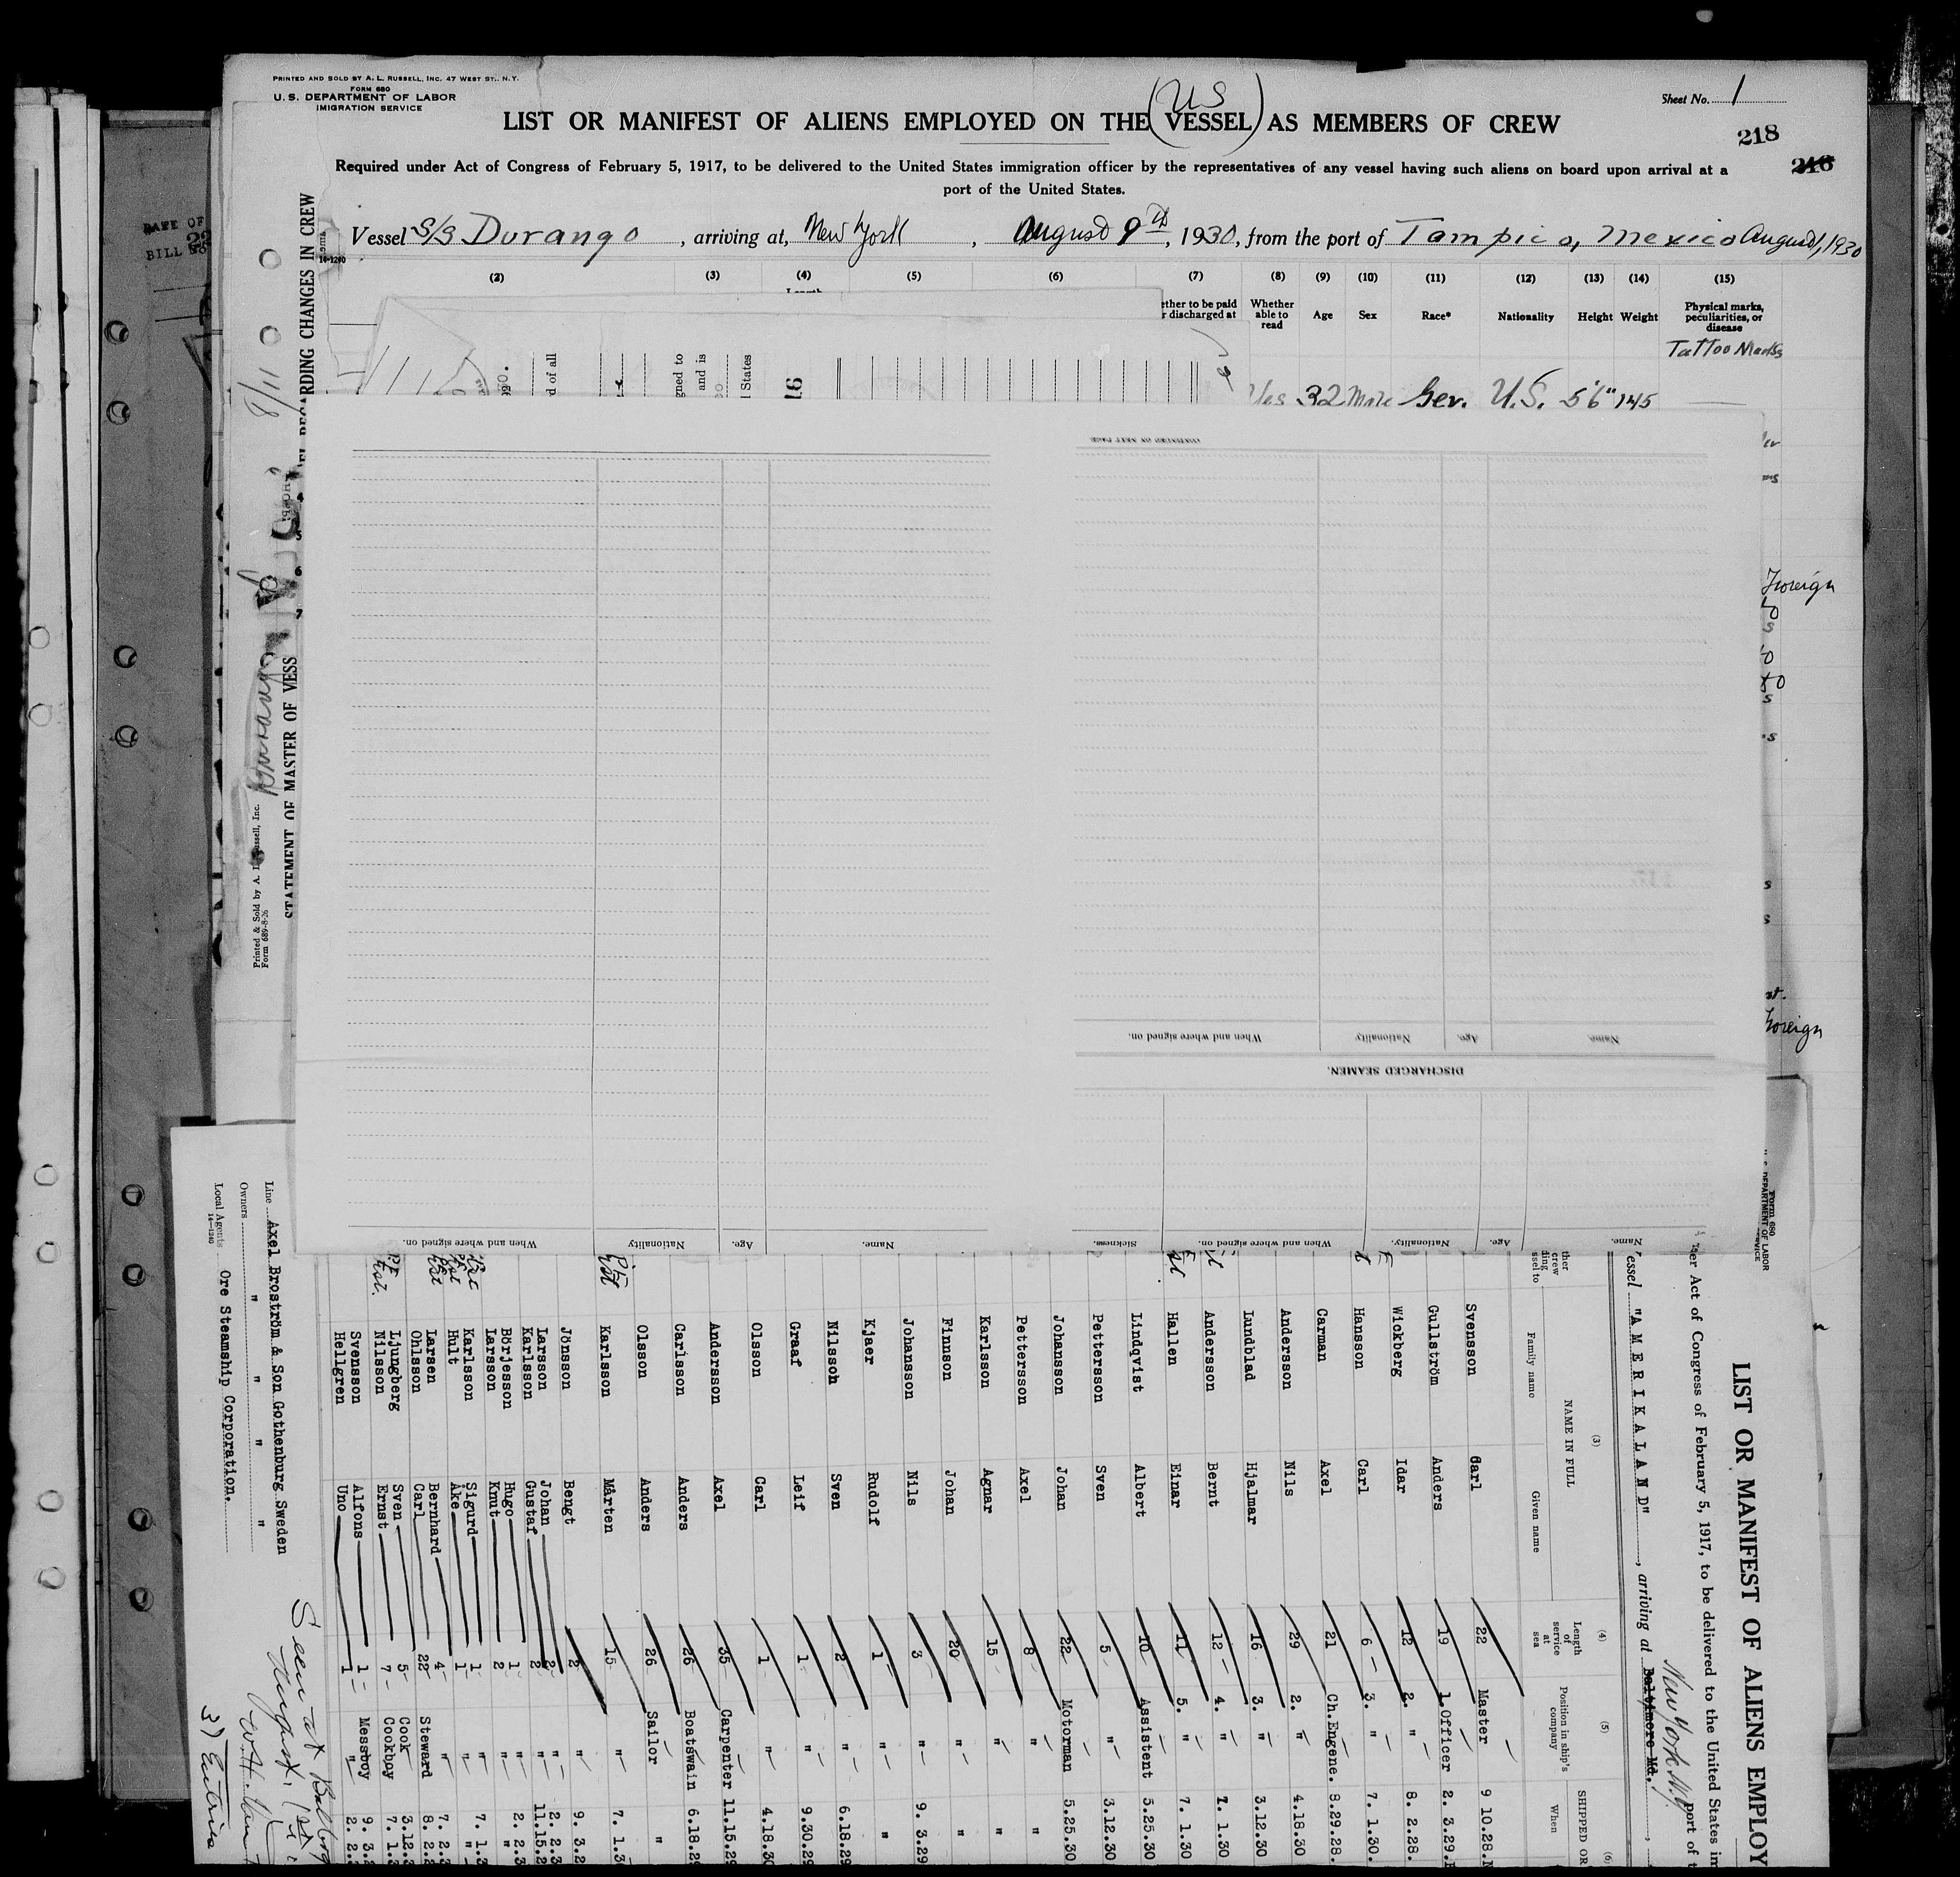 PRINTED AND SOLD BY A. L. RUSSELL, INC. 47 WEST ST., N.Y.
FORM 680
U. S. DEPARTMENT OF LABOR
IMIGRATION SERVICE
Sheet No. 1
(US)
LIST OR MANIFEST OF ALIENS EMPLOYED ON THE (VESSEL) AS MEMBERS OF CREW
218
216
Required under Act of Congress of February 5, 1917, to be delivered to the United States immigration officer by the representatives of any vessel having such aliens on board upon arrival at a
port of the United States.
Vessel S/S Durango, arriving at, New York, August 9th, 1930, from the port of Tampico, Mexico August 1, 1930
(2) (3) (4) (5) (6) (7) (8) (9) (10) (11) (12) (13) (14) (15)
ther to be paid
r discharged at
Whether
able to
read
Age
Sex
Race*
Nationality
Height
Weight
Physical marks,
peculiarities, or
disease
Tattoo Marks
Yes 32 Male Ger. U.S. 5'6" 145
d of all
gned to
and is
States
16
8/11
RDING CHANGES IN CREW
STATEMENT OF MASTER OF VESS
Durango
Printed & Sold by A. L. Russell, Inc.
Form 689-8-26
14-1240
4
5
6
7
DATE OF
BILL
Foreign
Foreign
CONTINUED ON NEXT PAGE
Name.
Age.
Nationality
When and where signed on.
DISCHARGED SEAMEN.
Name.
Age.
Nationality.
When and where signed on.
Sickness.
Name.
Age.
Nationality
When and where signed on.
Form 680
DEPARTMENT OF LABOR
LIST OR MANIFEST OF ALIENS EMPLOY
er Act of Congress of February 5, 1917, to be delivered to the United States im
port of t
essel "AMERIKALAND", arriving at Baltimore Md.
New York N.Y.
(3) (4) (5) (6)
NAME IN FULL
Family name
Given name
Length
of
service
at
sea
Position in ship's
company
SHIPPED OR
When
Svensson Carl 22 Master 9 10.28.
Gullström Anders 19 1. Officer 2. 3.29.
Wickberg Idar 12 2. " 8. 2.28.
Hansson Carl 6 3. " 7. 1.30.
Carman Axel 21 Ch.Engene. 8.29.28.
Andersson Nils 29 2. " 4.18.30
Lundblad Hjalmar 16 3. " 3.12.30
Andersson Bernt 12 4. " 7. 1.30
Hallen Einar 11 5. " 7. 1.30
Lindqvist Albert 10 Assistent 5.25.30
Pettersson Sven 5 " 3.12.30
Johansson Johan 22 Motorman 5.25.30
Pettersson Axel 8 " "
Karlsson Agnar 15 " "
Finnson Johan 20 " "
Johansson Nils 3 " 9. 3.29
Kjaer Rudolf 1 " "
Nilssoh Sven 2 " 6.18.29
Graaf Leif 1 " 9.30.29
Olsson Carl 1 " 4.18.30
Andersson Axel 35 Carpenter 11.15.29
Carlsson Anders 26 Boatswain 6.18.29
Olsson Anders 26 Sailor "
Karlsson Mårten 15 " 7. 1.3
Jönsson Bengt 2 " 9. 3.2
Larsson Johan 2 " 2. 2.3
Karlsson Gustaf 2 " 11.15.2
Börjesson Hugo 1 " "
Larsson Knut 2 " 2. 2.3
Karlsson Sigurd 1 " 7. 1.3
Hult Åke 1 " "
Larsen Bernhard 4 " 7. 2.3
Ohlsson Carl 22 Steward 8. 2.2
Ljungberg Sven 5 Cook 3.12.
Nilsson Ernst 7 Cookboy 7. 1.3
Svensson Alfons 1 Messboy 9. 3.2
Hellgren Uno 1 " 2. 2.
Line Axel Broström & Son Gothenburg Sweden
Owners " " " "
Local Agents Ore Steamship Corporation.
14-1240
Seen at
August